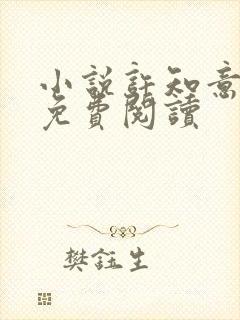 小說許知意
免費閱讀
樊鈺生